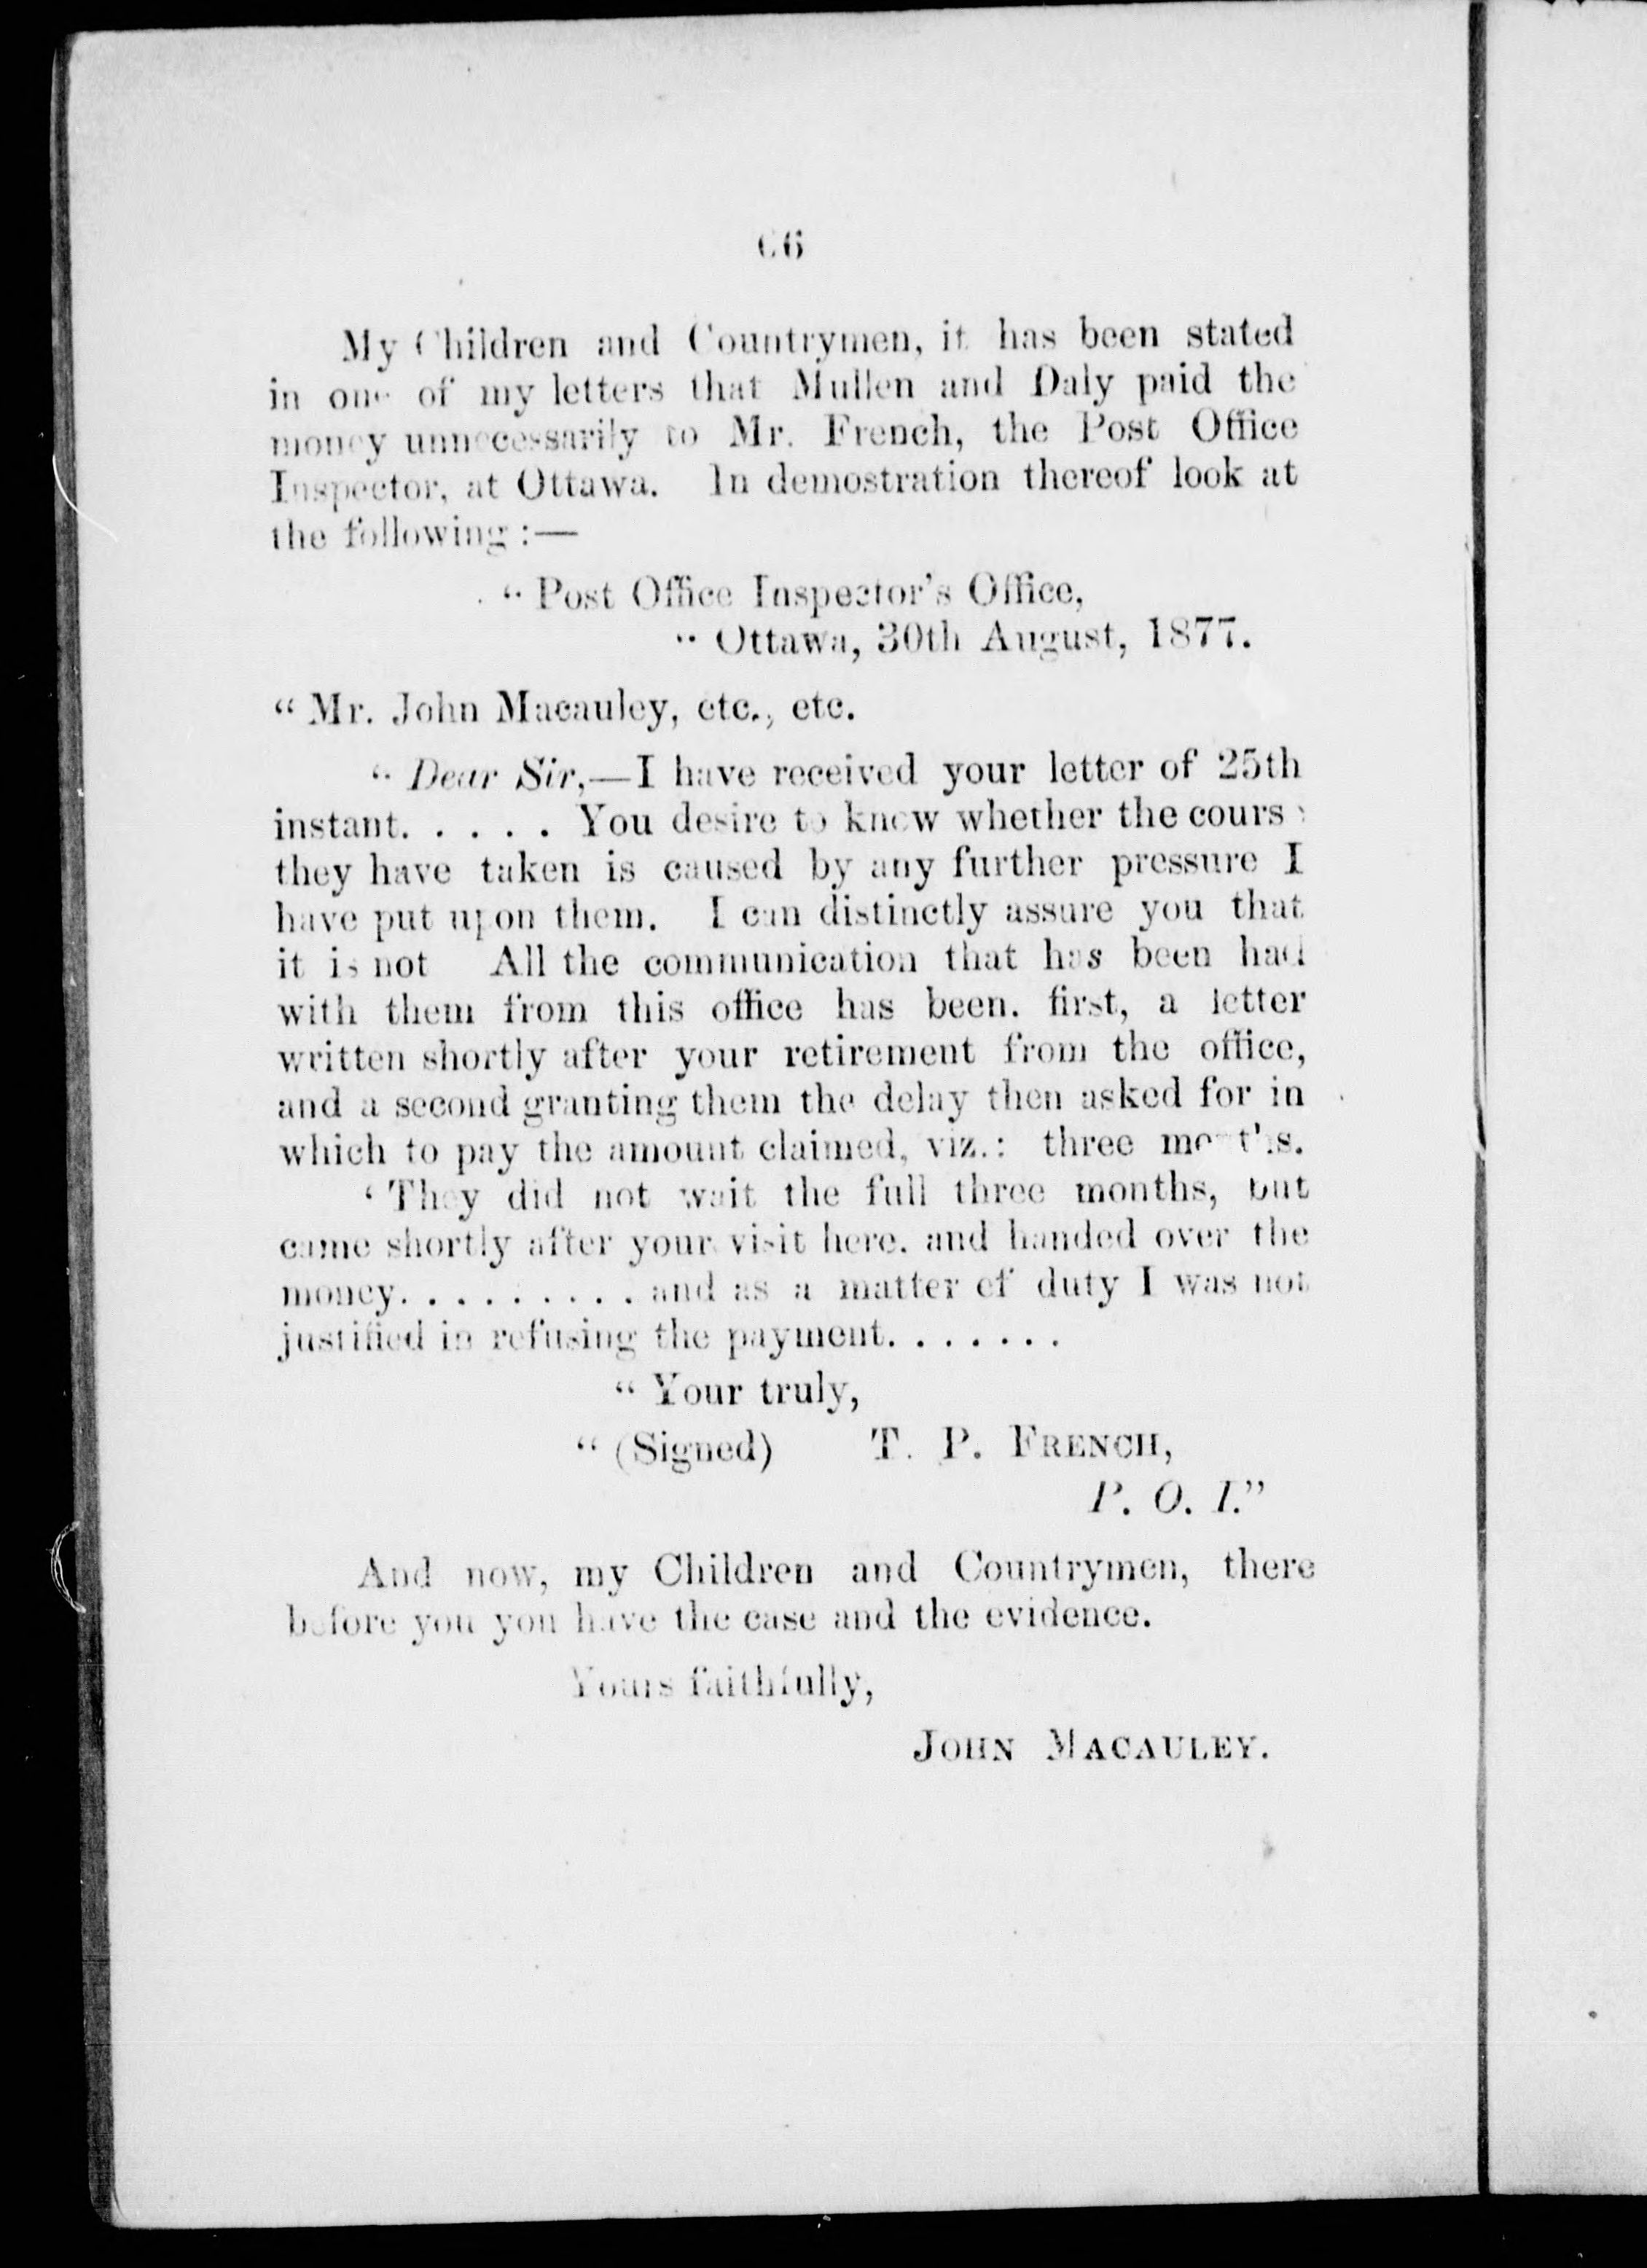 66
My Children and Countrymen, it has been stated
in one of my letters that Mullen and Daly paid the
money unnecessarily to Mr. French, the Post Office
Inspector, at Ottawa. In demostration thereof look at
the following :—
“ Post Office Inspector's Office,
“ Ottawa, 30th August, 1877.
“ Mr. John Macauley, etc., etc.
“ Dear Sir,—I have received your letter of 25th
instant. . . . . . You desire to know whether the course
they have taken is caused by any further pressure I
have put upon them. I can distinctly assure you that
it is not All the communication that has been had
with them from this office has been. first, a letter
written shortly after your retirement from the office,
and a second granting them the delay then asked for in
which to pay the amount claimed, viz.: three months.
‘ They did not wait the full three months, but
came shortly after your visit here. and handed over the
money. . . . . . . . . . and as a matter of duty I was not
justified in refusing the payment. . . . . . . .
“ Your truly,
“ (Signed) T. P. FRENCH,
P. O. I.”
And now, my Children and Countrymen, there
before you you have the case and the evidence.
Yours faithfully,
JOHN MACAULEY.